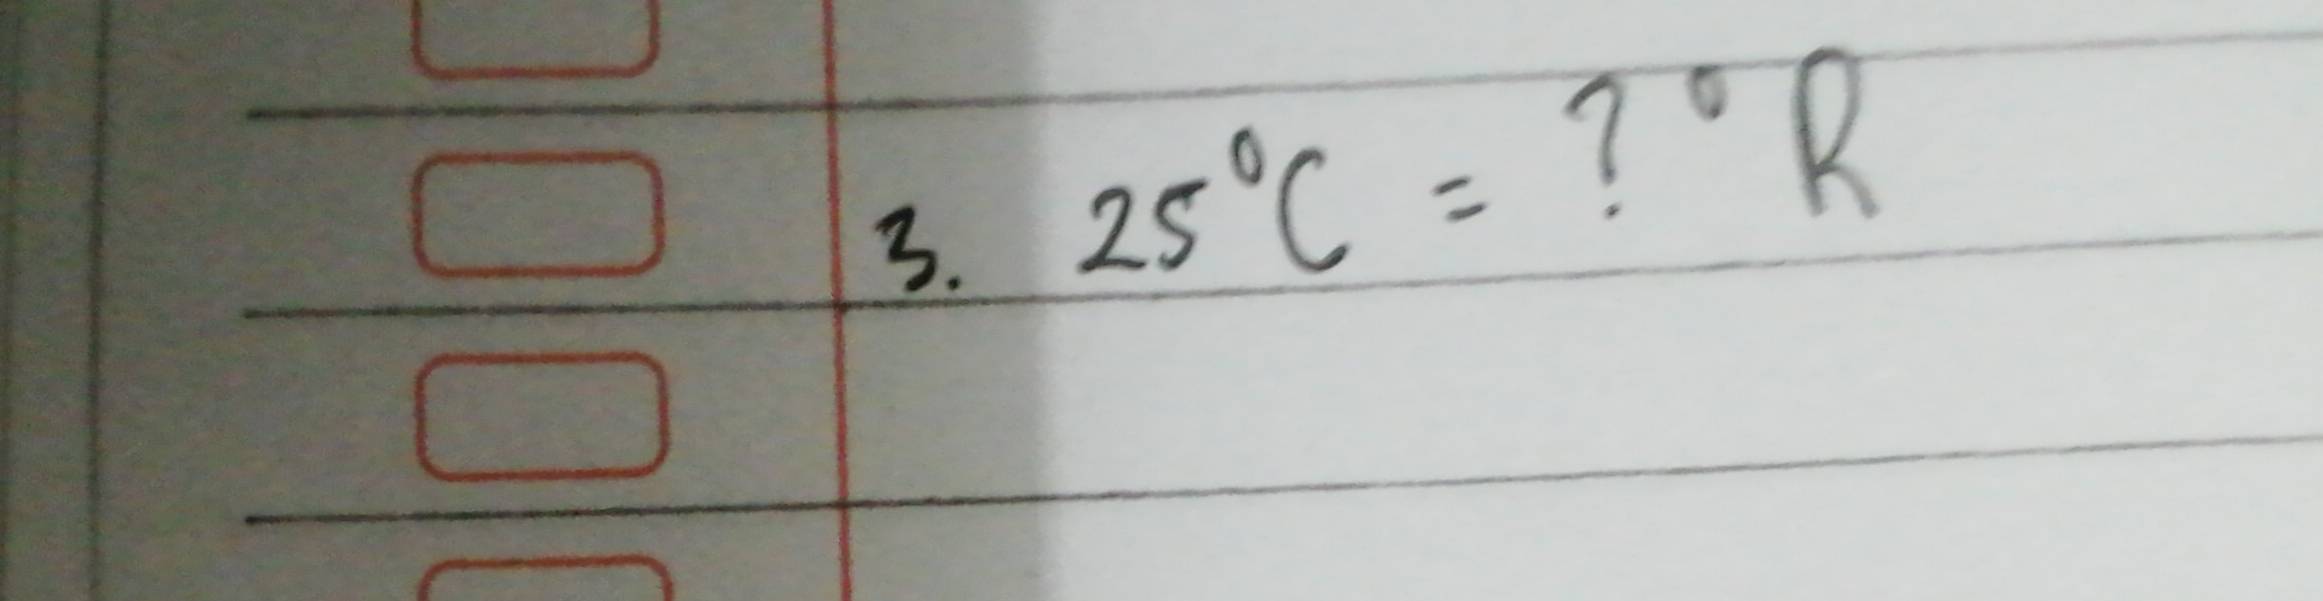 3. 25°C = ?°R